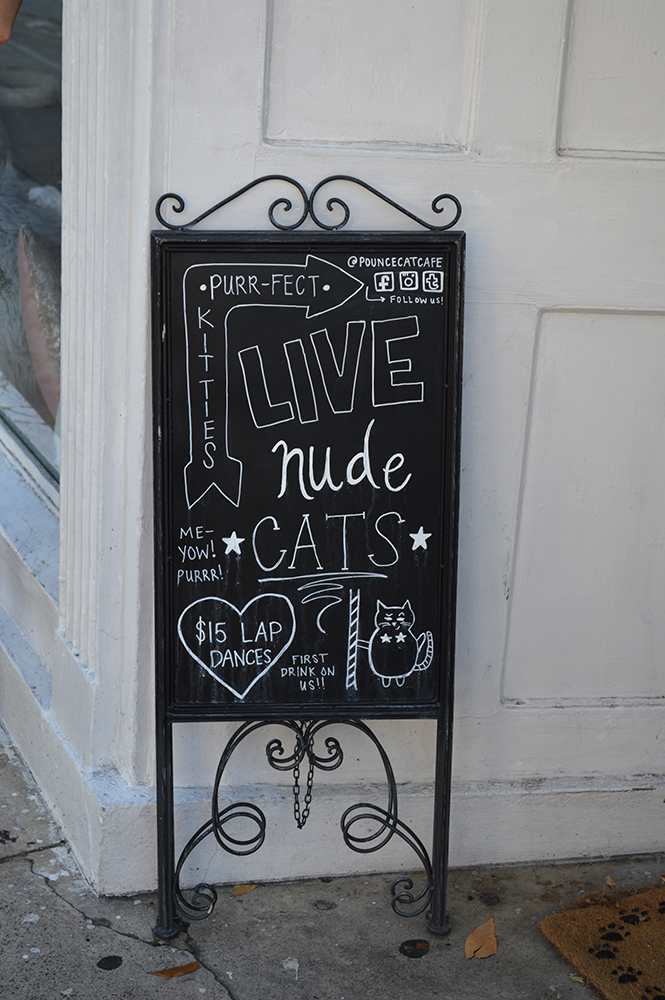 @POUNCECATCAFE
f t
FOLLOW US!
•PURR-FECT•
KITTIES
LIVE
nude
CATS
ME-
YOW!
PURRR!
$15 LAP
DANCES
FIRST
DRINK ON
US!!